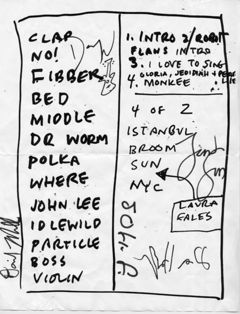 CLAP
NO!
FIBBER
BED
MIDDLE
DR WORM
POLKA
WHERE
JOHN LEE
IDLEWILD
PARTICLE
BOSS
VIOLIN
1. INTRO 2/ROBOT
FLANS INTRO
3. I LOVE TO SING
GLORIA, JEDIDIAH +
4. MONKEE
4 OF 2
ISTANBUL
BROOM
SUN
NYC
LAURA
EALES